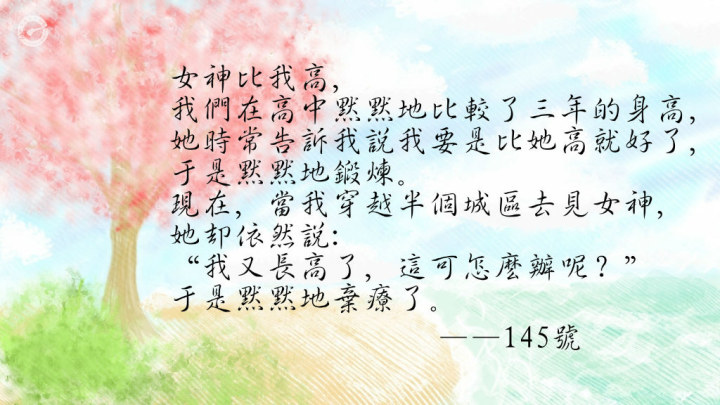 女神比我高，
我們在高中黙黙地比較了三年的身高，
她時常告訴我說我要是比她高就好了，
于是黙黙地鍛煉。
現在，當我穿越半個城區去見女神，
她却依然說：
“我又長高了，這可怎麼辦呢？”
于是黙黙地棄療了。
——145號